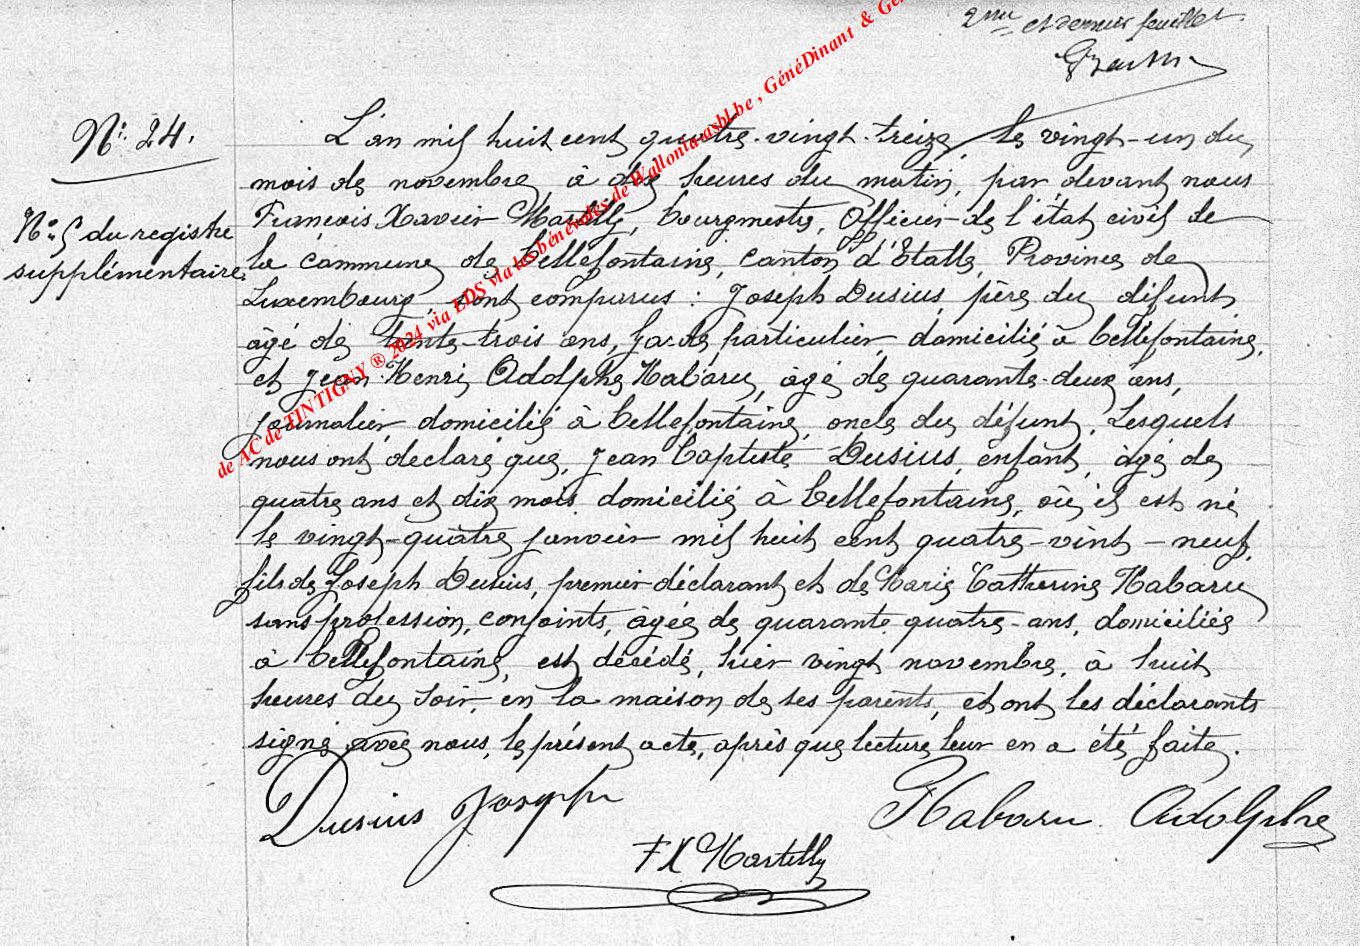 2me et dernier feuillet
N° 24.
N° 5 du registre
supplémentaire.
L'an mil huit cent quatre-vingt-treize, le vingt-un du
mois de novembre, à dix heures du matin, par devant nous
François Xavier Martilly, bourgmestre, Officier de l'état civil de
la commune de bellefontaine, canton d'Etalle, Province de
Luxembourg, sont comparus : Joseph Dusius, père du défunt,
âgé de trente-trois ans, Garde particulier, domicilié à bellefontaine,
et Jean-Henri Adolphe Habaru, âgé de quarante-deux ans,
journalier, domicilié à bellefontaine, oncle du défunt. Lesquels
nous ont déclaré que, Jean baptiste Dusius, enfant, âgé de
quatre ans et dix mois, domicilié à bellefontaine, où il est né
le vingt-quatre janvier mil huit cent quatre-vint-neuf,
fils de Joseph Dusius, premier déclarant et de Marie Catherine Habaru
sans profession, conjoints, âgée de quarante quatre-ans, domiciliés
à bellefontaine, est décédé, hier vingt novembre, à huit
heures du soir, en la maison de ses parents, et ont les déclarants
signé avec nous, le présent acte, après que lecture leur en a été faite.
Dusius Joseph
Habaru Adolphe
F X Martilly
de AC de TINTIGNY ® 2024 via EDS via les bénévoles de Wallonia asbl.be , GénéDinant & Gé